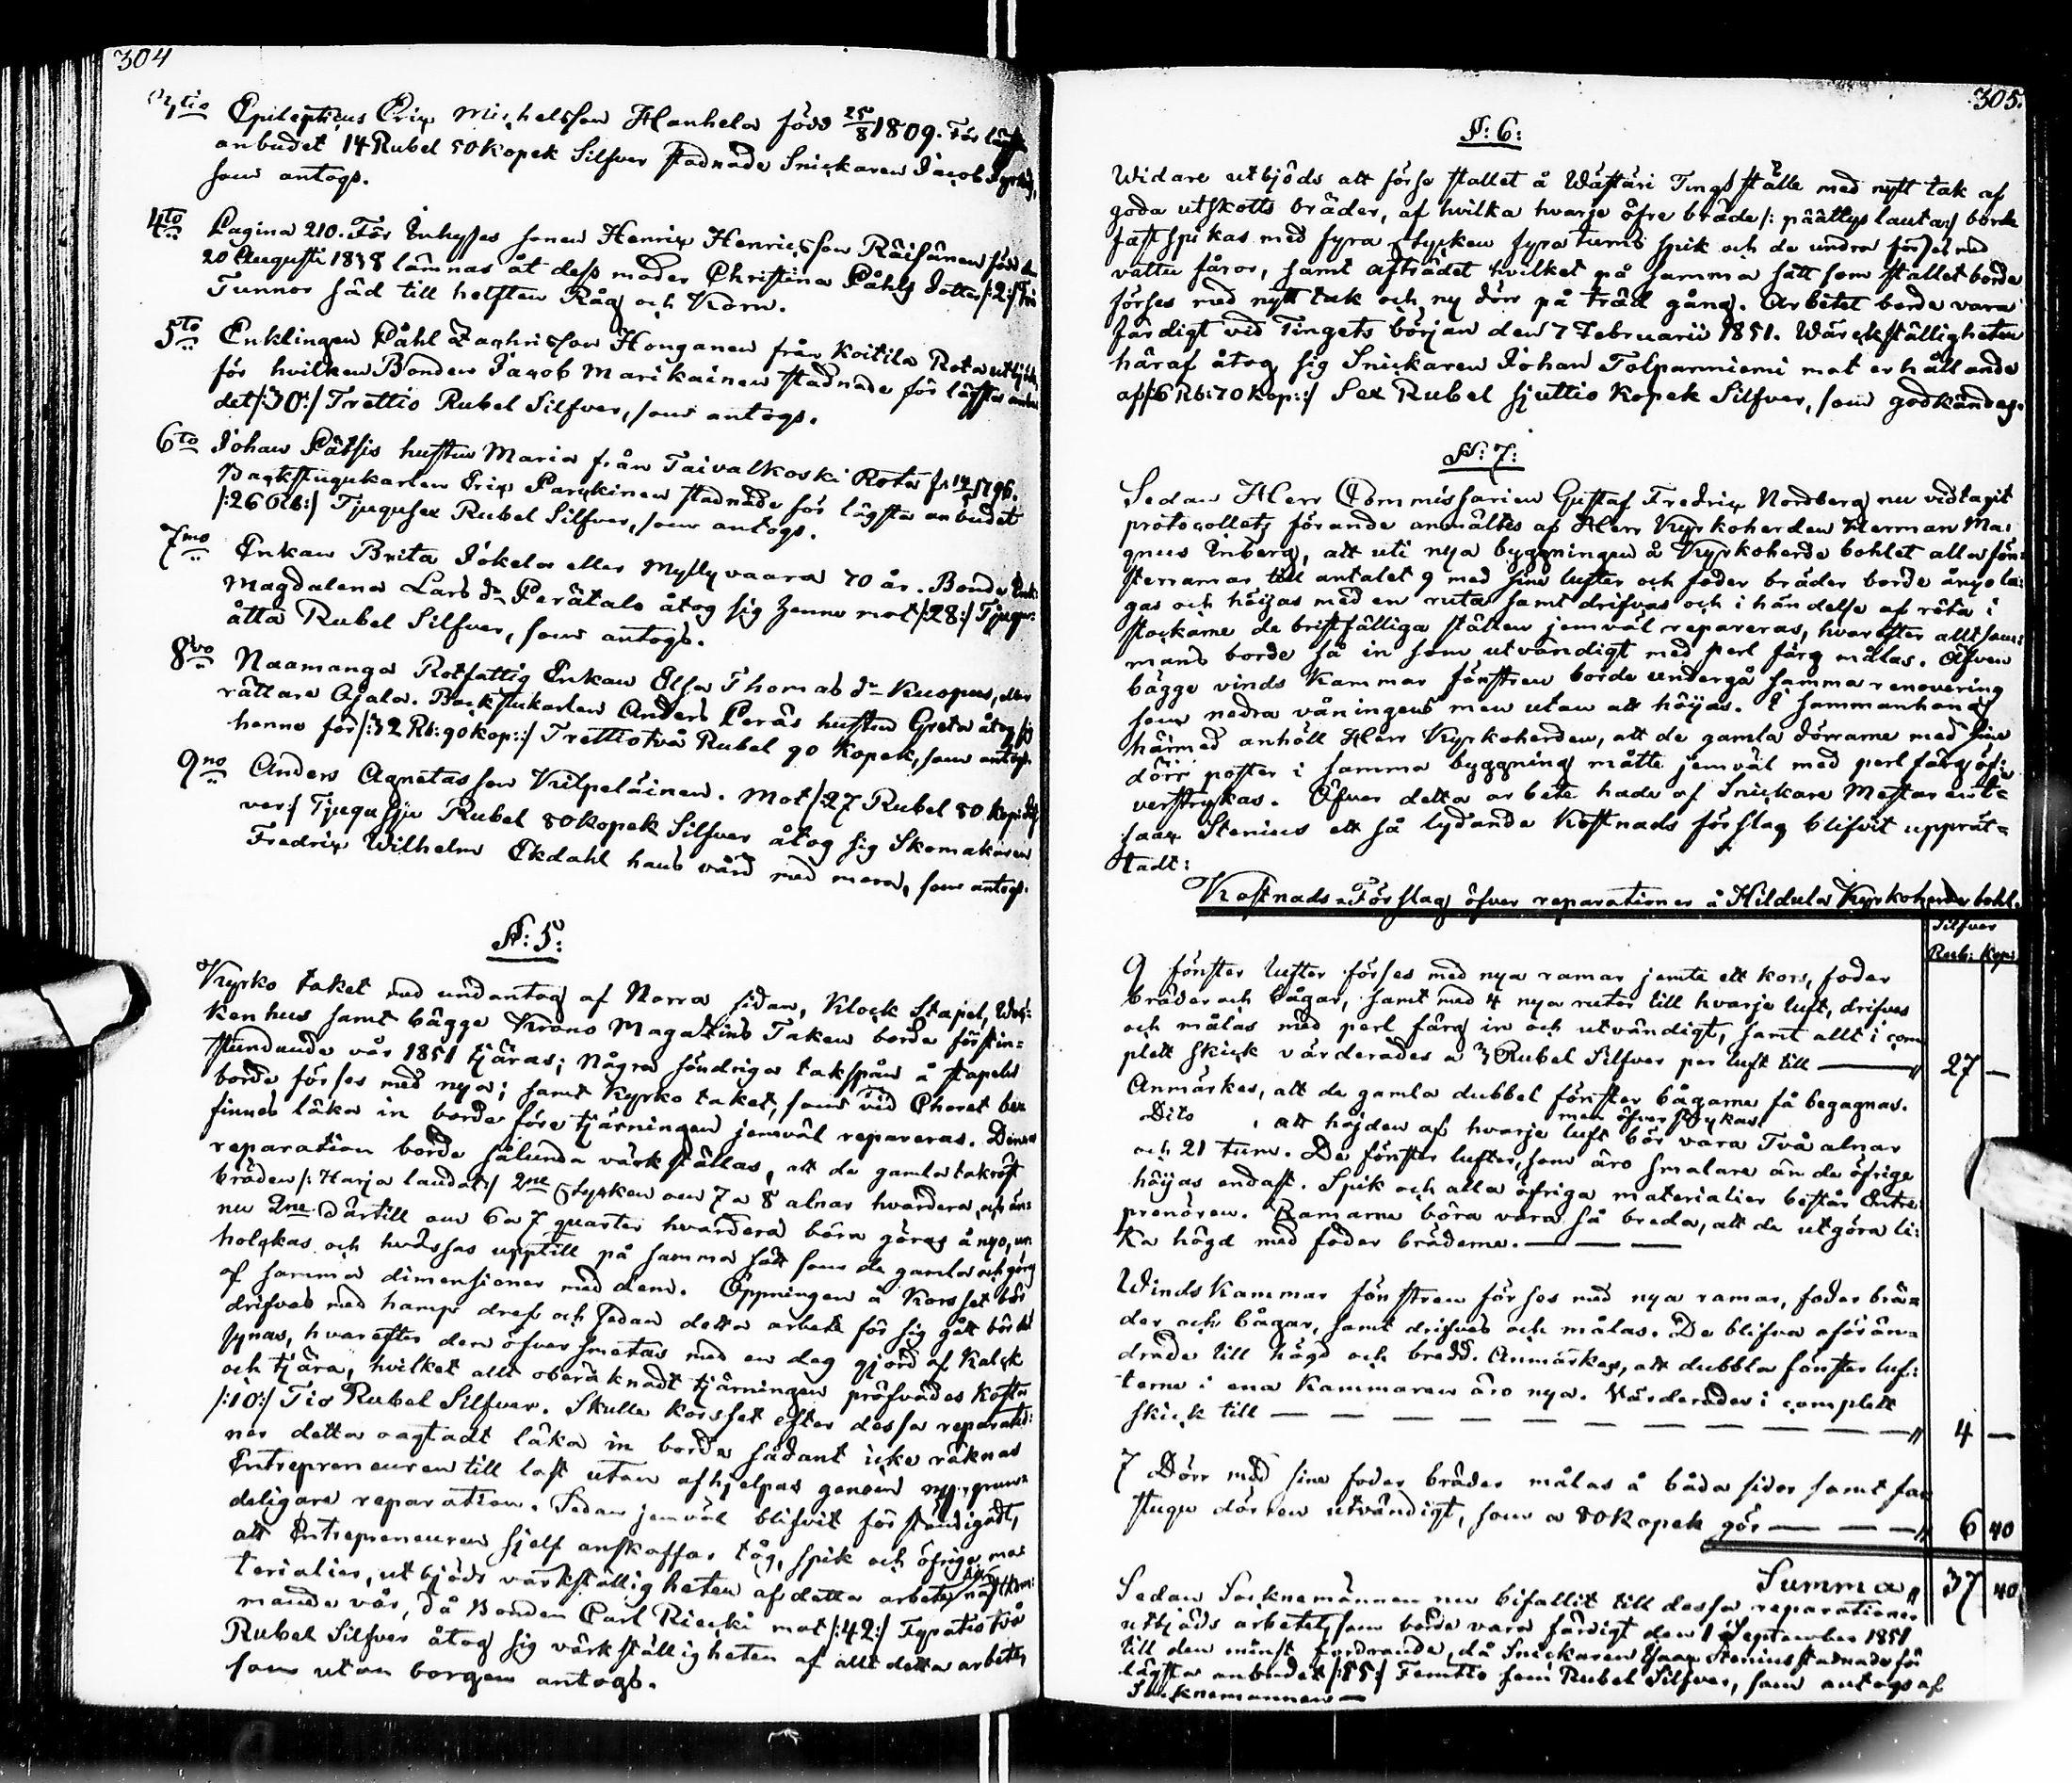 304
3tio Epilepticus Eric Michelsson Hanhela född 25/8 1809. För lägsta
anbudet 14 Rubel 50 Kopek Silfver stadnade Snickaren Jacob
som antogs.
4to Pagina 210. För Inhyses sonen Henric Henricsson Räisänen född den
20 Augusti 1838 lämnas åt dess moder Christina Påhls dotter /:2:/ Två
Tunnor säd till helften Råg och Korn.
5to Enklingen Påhl Zachrisson Honganen från Koitila Rota utbjöds,
för hvilken Bonden Jacob Marikainen stadnade för lägsta anbu
det /:30:/ Trettio Rubel Silfver, som antogs.
6to Johan Pätsis hustru Maria från Taivalkoski Rota f. 1796.
Backstugukarlen Eric Parckinen stadnade för lägsta anbudet
/:26 Rb:/ Tjugusex Rubel Silfver, som antogs.
7mo Enkan Brita Jokela eller Myllyvaara 70 år. Bonde Enk:
Magdalena Lars dr Perätalo åtog sig henne mot /:28:/ Tjugu-
åtta Rubel Silfver, som antogs.
8vo Naamanga Rotfattig Enkan Elsa Thomas dr Kuopus, eller
rättare Ojala. Backstukarlen Anders Peräs hustru Greta åtog sig
henne för /:32 Rb: 90 kop::/ Trettiotvå Rubel 90 Kopek, som antogs.
9no Anders Agnetasson Kilpeläinen. Mot /:27 Rubel 80 kop: Silf
ver:/ Tjugusju Rubel 80 Kopek Silfver åtog sig Skomakaren
Fredric Wilhelm Ekdahl hans vård med mera, som antogs.
§: 5:
Kyrko taket med undantag af Norra sidan, Klock Stapel, Wå-
kenhus samt bägge Krono Magazins Taken borde förstin-
stundande vår 1851 tjäras; Några söndriga takspån å stapeln
borde förses med nya; samt Kyrko taket, som vid Choret be-
finnes läka in borde före tjärningen jemväl repareras. Denna
reparation borde sålunda värkställas, att de gamla takröst
bräden /: Harja laudat:/ 2ne Stycken om 7 a 8 alnar hvardera, och än-
nu 2ne Därtill om 6 a 7 quarter hvardera böra göras å nyo, ur-
holckas och hvässas upptill på samma sätt som de gamla och göras
af samma dimensioner med dem. Öppningen å Korsset bör
drifvas med hamp dref och sedan detta arbete för sig gått bör det
synas, hvarefter den öfversmetas med en deg gjord af Kalck
och tjära, hvilket allt oberäknadt tjärningen pröfvades kosta
/:10:/ Tio Rubel Silfver. Skulle Korsset efter dessa reparatio:
ner detta oagtadt läka in borde sådant icke räknas
Entrepreneuren till last utan afhjelpas genom ny, grun-
deligare reparation. Sedan jemväl blifvit för ständigadt,
att Entrepreneuren sjelf anskaffar tåg, spik och öfriga ma-
terialier, utbjöds värkställigheten af detta arbete näst kom:
mande vår, då Bonden Carl Riecki mot /:42:/ Fyratiotvå
Rubel Silfver åtog sig värkställigheten af allt detta arbete,
som utan borgen antogs.
305.
§: 6:
Widare utbjöds att förse stallet å Wästäri Tings ställe med nytt tak af
goda utskotts bräder, af hvilka hvarje öfre bräde /: päällys lautas:/ borde
fastspikas med fyra stycken fyra tums spik och de undra förses med
vattu fåror, samt afträdet hvilket på samma sätt som stallet borde
förses med nytt tak och ny dörr på träd gång. Arbetet borde vara
färdigt vid Tingets början den 7 Februarii 1851. Wärckställigheten
häraf åtog sig Snickaren Johan Tolpanniemi mot erhållande
af /:6 Rb: 70 kop::/ Sex Rubel sjuttio Kopek Silfver, som godkändes.
§: 7:
Sedan Herr Commissarien Gustaf Fredric Nordberg nu vidtagit
protocollets förande anmältes af Herr Kyrkoherden Herman Ma-
gnus Enberg, att uti nya byggningen å Kyrkoherde bohlet alla fön-
sterramar till antalet 9 med sine lufter och foder bräder borde ånyo la-
gas och höijas med en ruta samt drifvas och i händelse af röta i
stockarne de bristfälliga ställen jemväl repareras, hvarefter allt sam-
mans borde så in som utvändigt med perl färg målas. Äfven
bägge vinds Kammar fönstren borde undergå samma renovering
som nedra våningens men utan att höijas. I sammanhang
härmed anhöll Herr Kyrkoherden, att de gamla dörrarne med sine
dörr poster i samma byggning måtte jemväl med perl färg öf-
verstrykas. Öfver detta arbete hade af Snickare Mästaren I-
saac Stenius ett så lydande Kostnads förslag blifvit upprät-
tadt:
Kostnads-Förslag öfver reparationer å Hildula Kyrkoherde bohl.
Silfver
Rub: Kop:
9 fönster lufter förses med nya ramar jemte ett kors, foder
bräder och bågar, samt med 4 nya rutor till hvarje luft, drifves
och målas med perl färg in och utvändigt, samt allt i com
plett skick värderades a 3 Rubel Silfver per luft till — " 27 —
Anmärkes, att de gamla dubbel fönster bågarne få begagnas.
men öfverstrykas
Dito , att höjden af hvarje luft bör vara Två alnar
och 21 tum. De fönster lufter, som äro smalare än de öfrige
höijas endast. Spik och alla öfriga materialier består Entre-
prenören. Ramarne böra vara så breda, att de utgöra li-
ka högd med foder bräderne. — — —
Winds Kammar fönstren förses med nya ramar, foder brä-
der och bågar, samt drifves och målas. De blifva oförän-
drade till högd och bredd. Anmärkes, att dubbla fönster luf-
terne i ena Kammaren äro nya. Värderades i complett
skick till — — — — — — — — — — " 4 —
7 Dörr med sine foder bräder målas å båda sidor samt far
stugu dörren utvändigt, som a 80 Kopek gör — — — " 6 40
Summa " 37 40
Sedan Socknemännen nu bifallit till dessa reparationer
utbjöds arbetet, som borde vara färdigt den 1 September 1851
till den minst fordrande, då Snickaren Isaac Stenius stadnade för
lägsta anbudet /:55:/ Femtio fem Rubel Silfver, som antogs af
Socknemännen —